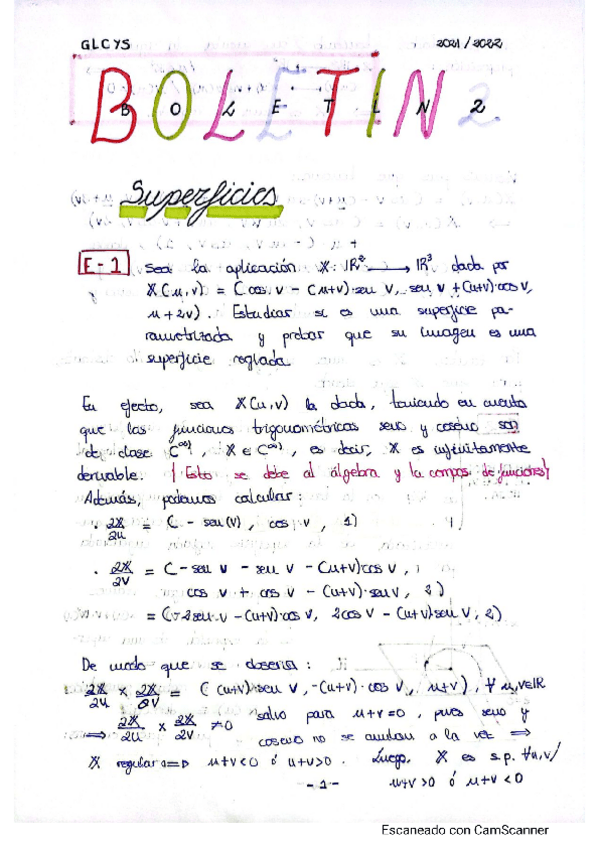 GLCYS 2021/2022
BOLETIN 2
B O L E T I N 2
Superficies
E-1 Sea la aplicación X: IR² → IR³ dada por
X(u,v) = (cos v - (u+v)·seu v, seu v + (u+v)·cos v,
u + 2v). Estudiar si es una superficie pa-
rametrizada y probar que su imagen es una
superficie reglada.
En efecto, sea X(u,v) la dada, teniendo en cuenta
que las funciones trigonométricas seno y coseno son
de clase C^∞), X ∈ C^∞), es decir, X es infinitamente
derivable. {Esto se debe al álgebra y la compos. de funciones}
Además, podemos calcular:
· ∂X/∂u = (- seu(v), cos v, 1)
· ∂X/∂v = (-seu v - seu v - (u+v)cos v,
cos v + cos v - (u+v)·seu v, 2)
= (-2seu v - (u+v)·cos v, 2cos v - (u+v)seu v, 2)
De modo que se observa:
∂X/∂u × ∂X/∂v = ((u+v)·seu v, -(u+v)·cos v, u+v), ∀ u,v∈IR
⟹ ∂X/∂u × ∂X/∂v ≠ 0 salvo para u+v=0, pues seno y
coseno no se anulan a la vez ⟹
X regular ⟺ u+v<0 ó u+v>0. Luego, X es s.p. ∀u,v/
-1- u+v>0 ó u+v<0
Escaneado con CamScanner